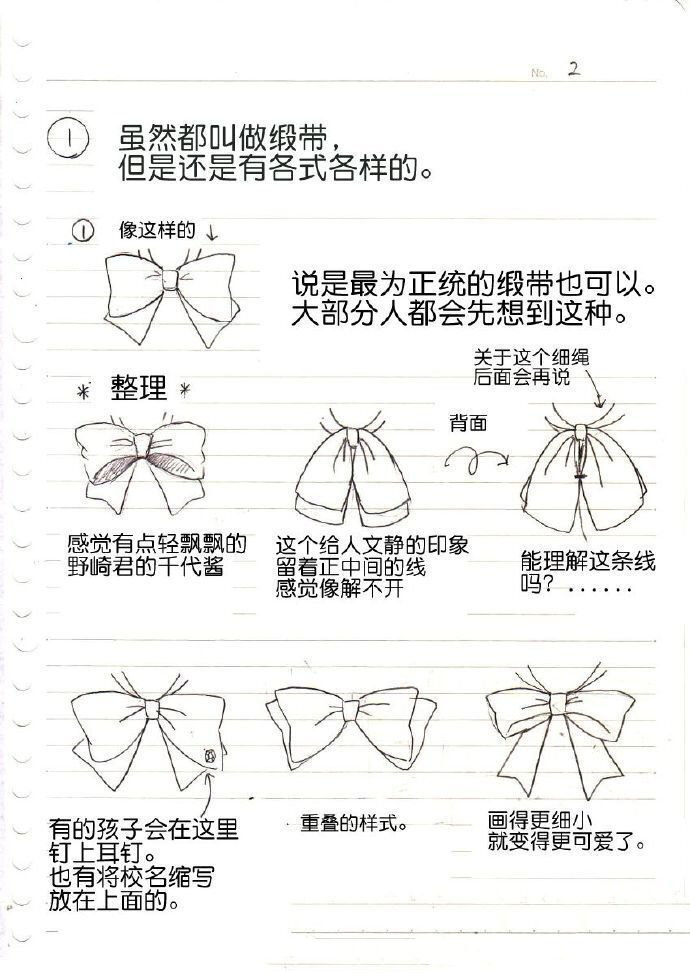 No. 2
① 虽然都叫做缎带，
但是还是有各式各样的。
① 像这样的↓
说是最为正统的缎带也可以。
大部分人都会先想到这种。
关于这个细绳
后面会再说
* 整理 *
背面
感觉有点轻飘飘的
野崎君的千代酱
这个给人文静的印象
留着正中间的线
感觉像解不开
能理解这条线
吗？......
有的孩子会在这里
钉上耳钉。
也有将校名缩写
放在上面的。
重叠的样式。
画得更细小
就变得更可爱了。